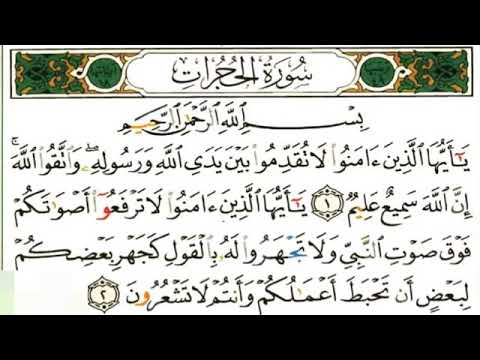 سُورَةُ الحُجُرَاتِ
بِسْمِ ٱللَّهِ ٱلرَّحْمَٰنِ ٱلرَّحِيمِ
يَٰٓأَيُّهَا ٱلَّذِينَ ءَامَنُوا۟ لَا تُقَدِّمُوا۟ بَيْنَ يَدَىِ ٱللَّهِ وَرَسُولِهِۦ ۖ وَٱتَّقُوا۟ ٱللَّهَ ۚ
إِنَّ ٱللَّهَ سَمِيعٌ عَلِيمٌ ١ يَٰٓأَيُّهَا ٱلَّذِينَ ءَامَنُوا۟ لَا تَرْفَعُوٓا۟ أَصْوَٰتَكُمْ
فَوْقَ صَوْتِ ٱلنَّبِىِّ وَلَا تَجْهَرُوا۟ لَهُۥ بِٱلْقَوْلِ كَجَهْرِ بَعْضِكُمْ
لِبَعْضٍ أَن تَحْبَطَ أَعْمَٰلُكُمْ وَأَنتُمْ لَا تَشْعُرُونَ ٢